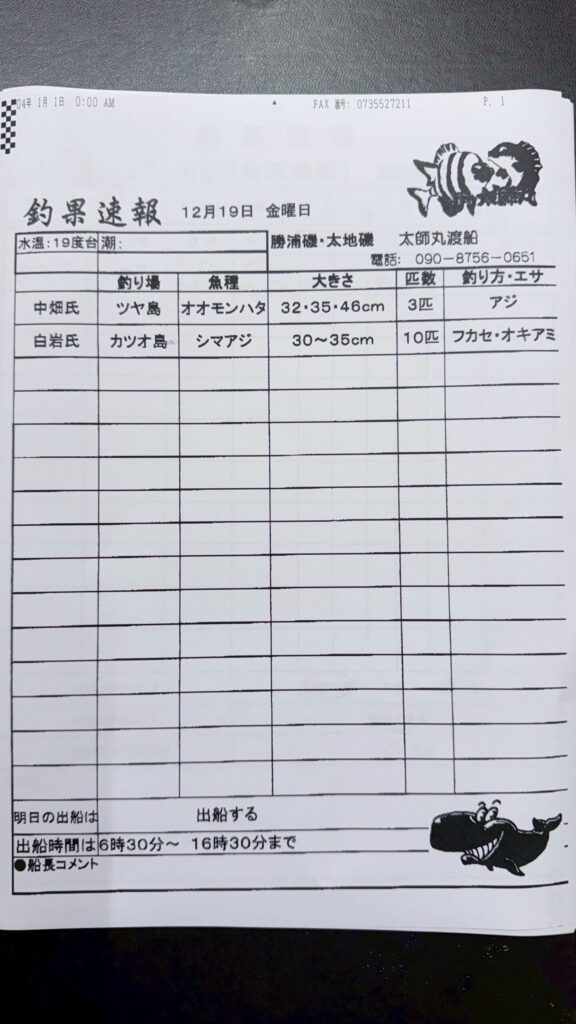 04年 1月 1日 0:00 AM FAX 番号: 0735527211 P. 1
釣果速報 12月19日 金曜日
水温:19度台 潮: 勝浦磯・太地磯 太師丸渡船
電話: 090-8756-0651
釣り場 魚種 大きさ 匹数 釣り方・エサ
中畑氏 ツヤ島 オオモンハタ 32・35・46cm 3匹 アジ
白岩氏 カツオ島 シマアジ 30～35cm 10匹 フカセ・オキアミ
明日の出船は 出船する
出船時間は 6時30分～ 16時30分まで
●船長コメント